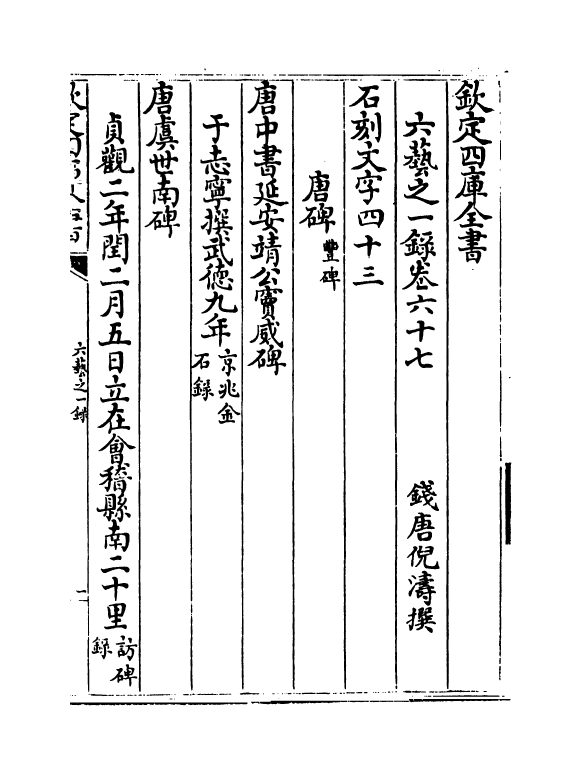 欽定四庫全書
六藝之一録卷六十七
錢唐倪濤撰
石刻文字四十三
唐碑豐碑
唐中書延安靖公竇威碑
于志寧撰武德九年京兆金石錄
唐虞世南碑
貞觀二年閏二月五日立在會稽縣南二十里訪碑錄
六藝之一録